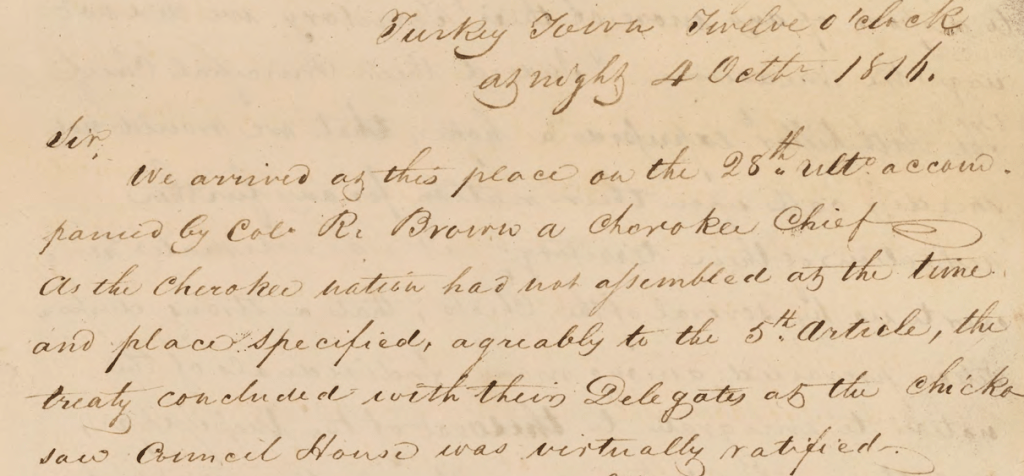 Turkey Town Twelve o'clock
at night 4 Octbr. 1816.
Sir,
We arrived at this place on the 28th. ulto. accom-
panied by Colo. R. Brown a Cherokee Chief
As the Cherokee nation had not assembled at the time
and place specified, agreably to the 5th. Article, the
treaty concluded with their Delegates at the Chicka
saw Council House was virtually ratified.